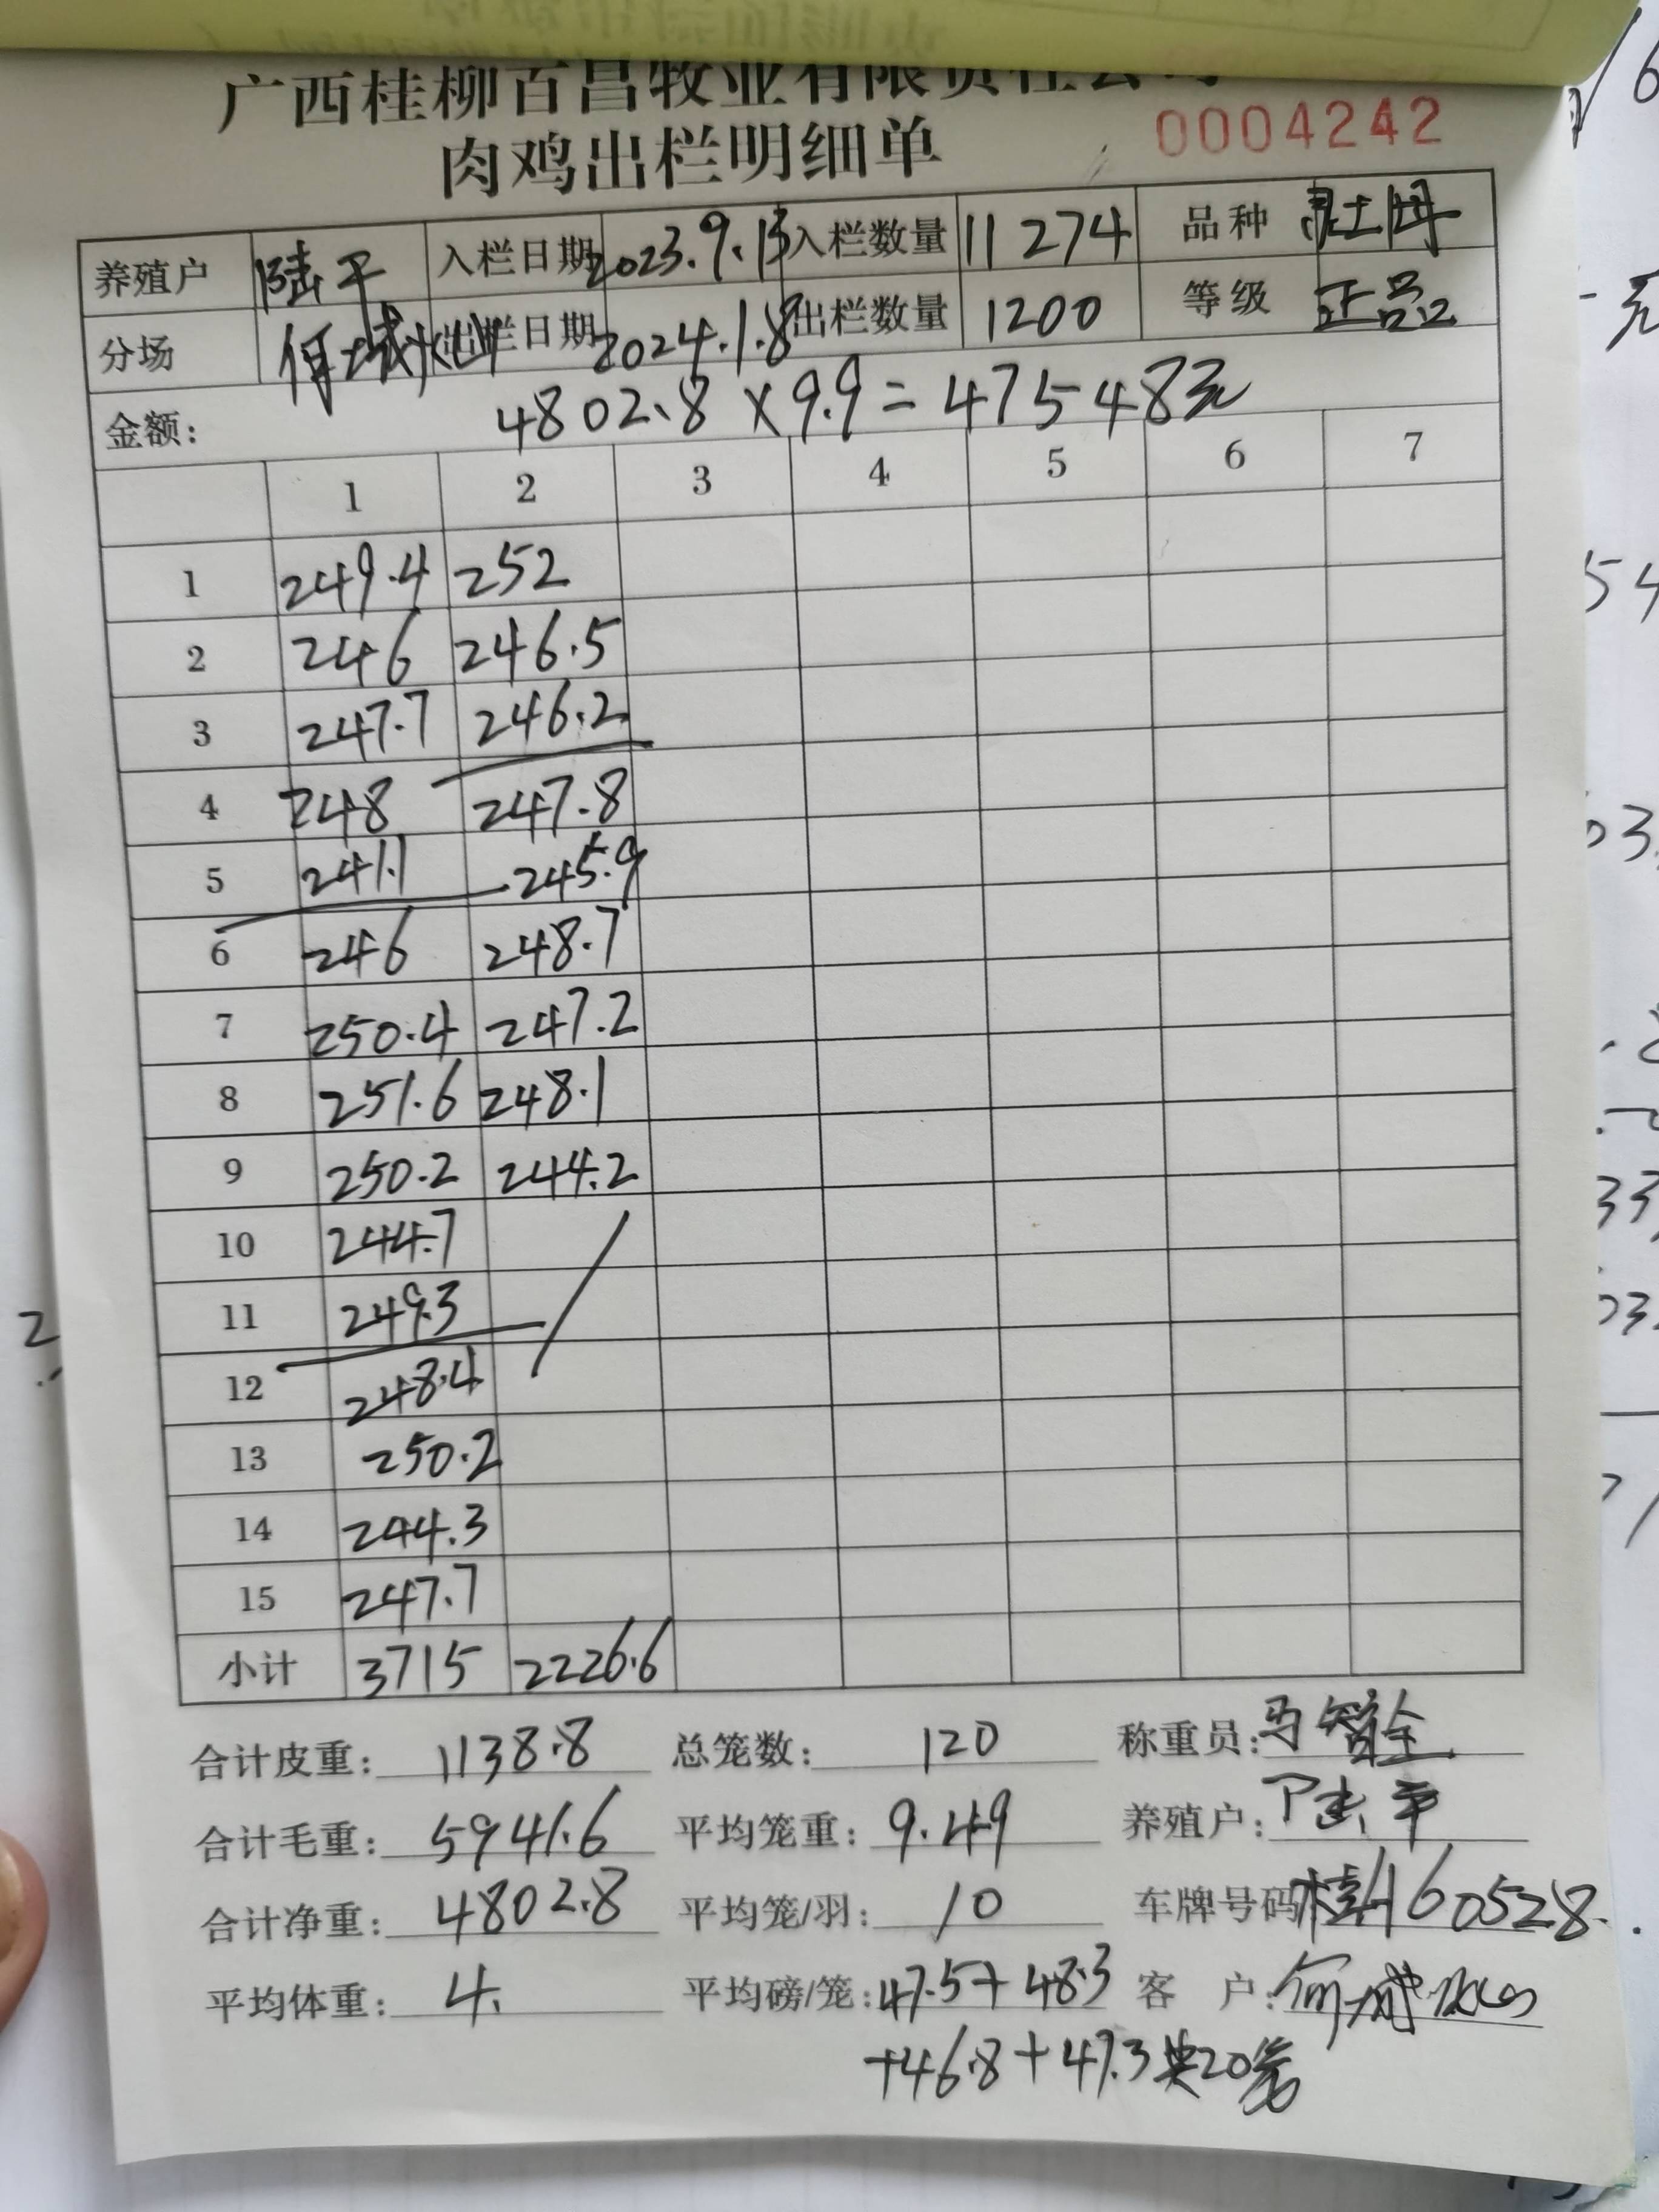 广西桂柳百昌牧业有限责任公司
肉鸡出栏明细单 0004242
养殖户 陆平 入栏日期 2023.9.13 入栏数量 11274 品种
分场 出栏日期 2024.1.8 出栏数量 1200 等级 正品
金额: 4802.8×9.9=47548元
1 2 3 4 5 6 7
1 249.4 252
2 246 246.5
3 247.7 246.2
4 248 247.8
5 241.1 245.9
6 246 248.7
7 250.4 247.2
8 251.6 248.1
9 250.2 244.2
10 244.7
11 249.3
12 248.4
13 250.2
14 244.3
15 247.7
小计 3715 2226.6
合计皮重: 1138.8 总笼数: 120 称重员: 马智全
合计毛重: 5941.6 平均笼重: 9.49 养殖户: 陆平
合计净重: 4802.8 平均笼/羽: 10 车牌号码 桂A60528
平均体重: 4. 平均磅/笼: 47.5+48.3 客 户:
+46.8+47.3共20笼